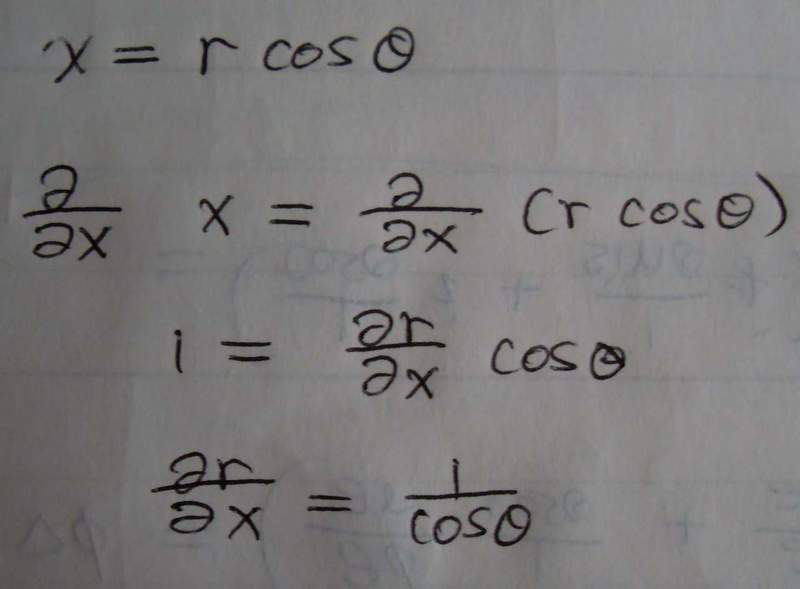 x = r cosθ
∂/∂x x = ∂/∂x (r cosθ)
1 = ∂r/∂x cosθ
∂r/∂x = 1/cosθ